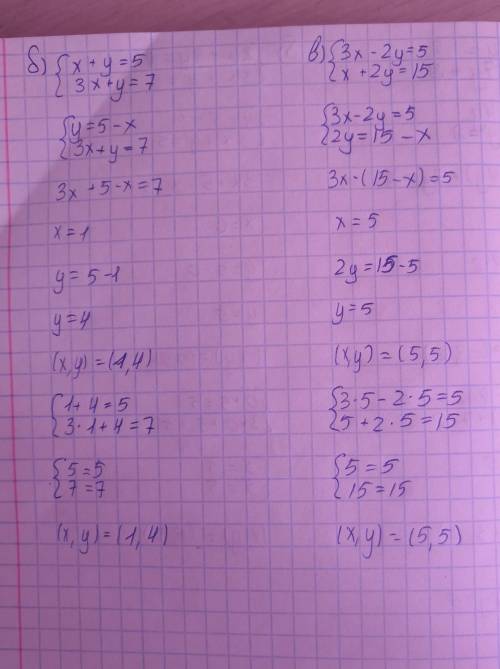 б) { x + y = 5
3x + y = 7
{ y = 5 - x
3x + y = 7
3x + 5 - x = 7
x = 1
y = 5 - 1
y = 4
(x, y) = (1, 4)
{ 1 + 4 = 5
3 · 1 + 4 = 7
{ 5 = 5
7 = 7
(x, y) = (1, 4)
в) { 3x - 2y = 5
x + 2y = 15
{ 3x - 2y = 5
2y = 15 - x
3x - (15 - x) = 5
x = 5
2y = 15 - 5
y = 5
(x, y) = (5, 5)
{ 3 · 5 - 2 · 5 = 5
5 + 2 · 5 = 15
{ 5 = 5
15 = 15
(x, y) = (5, 5)